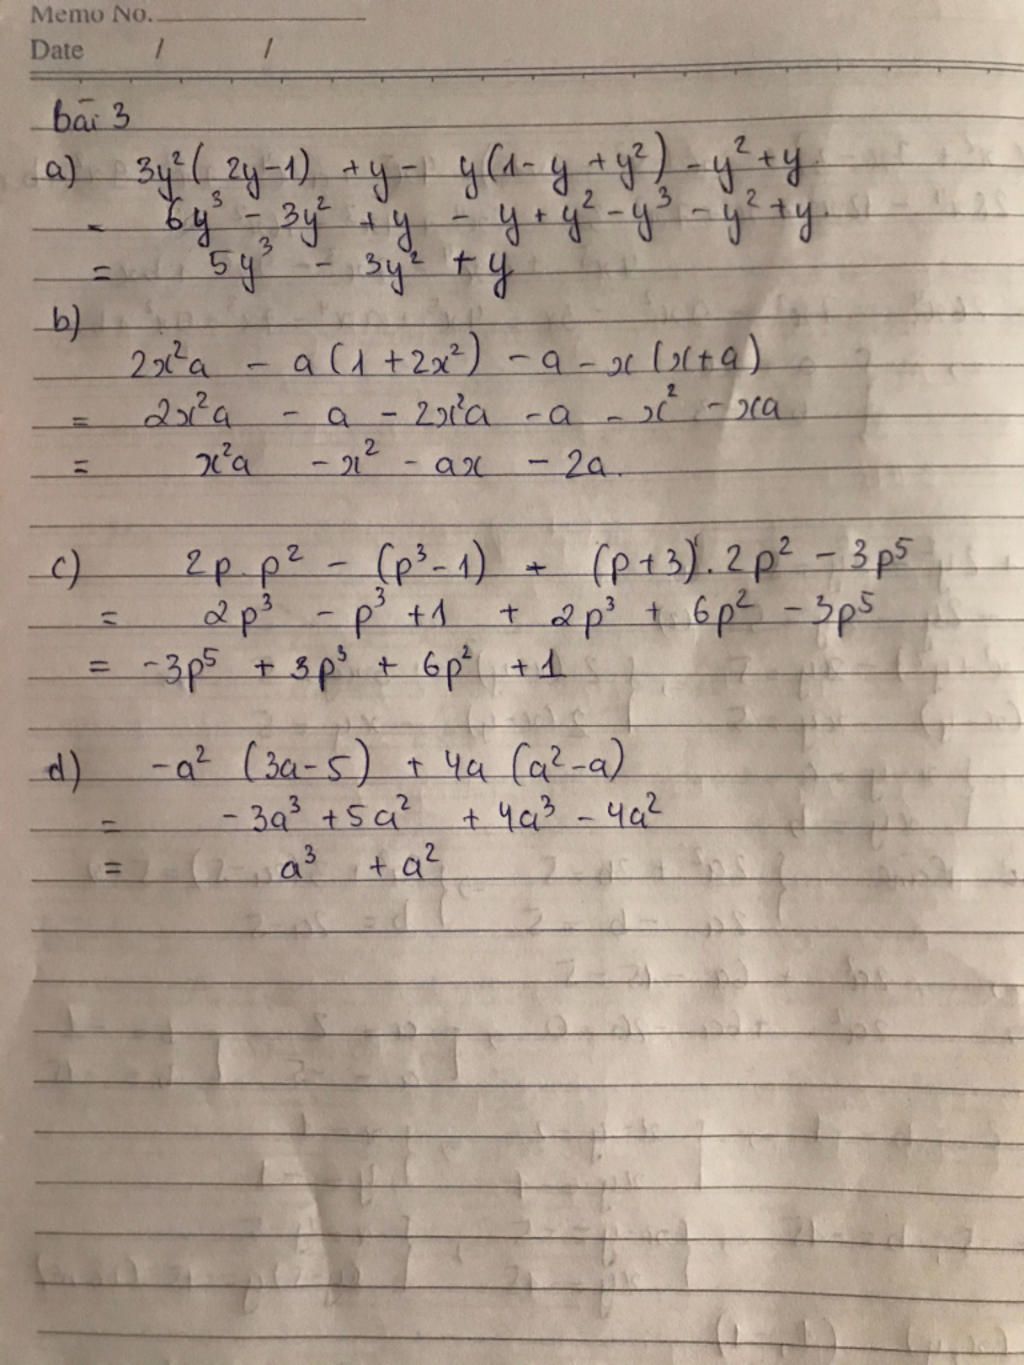 Memo No.
Date / /
bài 3
a) 3y²(2y-1) + y - y(1-y+y²) - y² + y
= 6y³ - 3y² + y - y + y² - y³ - y² + y
= 5y³ - 3y² + y
b)
2x²a - a(1+2x²) - a - x(x+a)
= 2x²a - a - 2x²a - a - x² - xa
= x²a - x² - ax - 2a.
c) 2p.p² - (p³-1) + (p+3).2p² - 3p⁵
= 2p³ - p³ + 1 + 2p³ + 6p² - 3p⁵
= -3p⁵ + 3p³ + 6p² + 1
d) -a² (3a-5) + 4a (a²-a)
= -3a³ + 5a² + 4a³ - 4a²
= a³ + a²